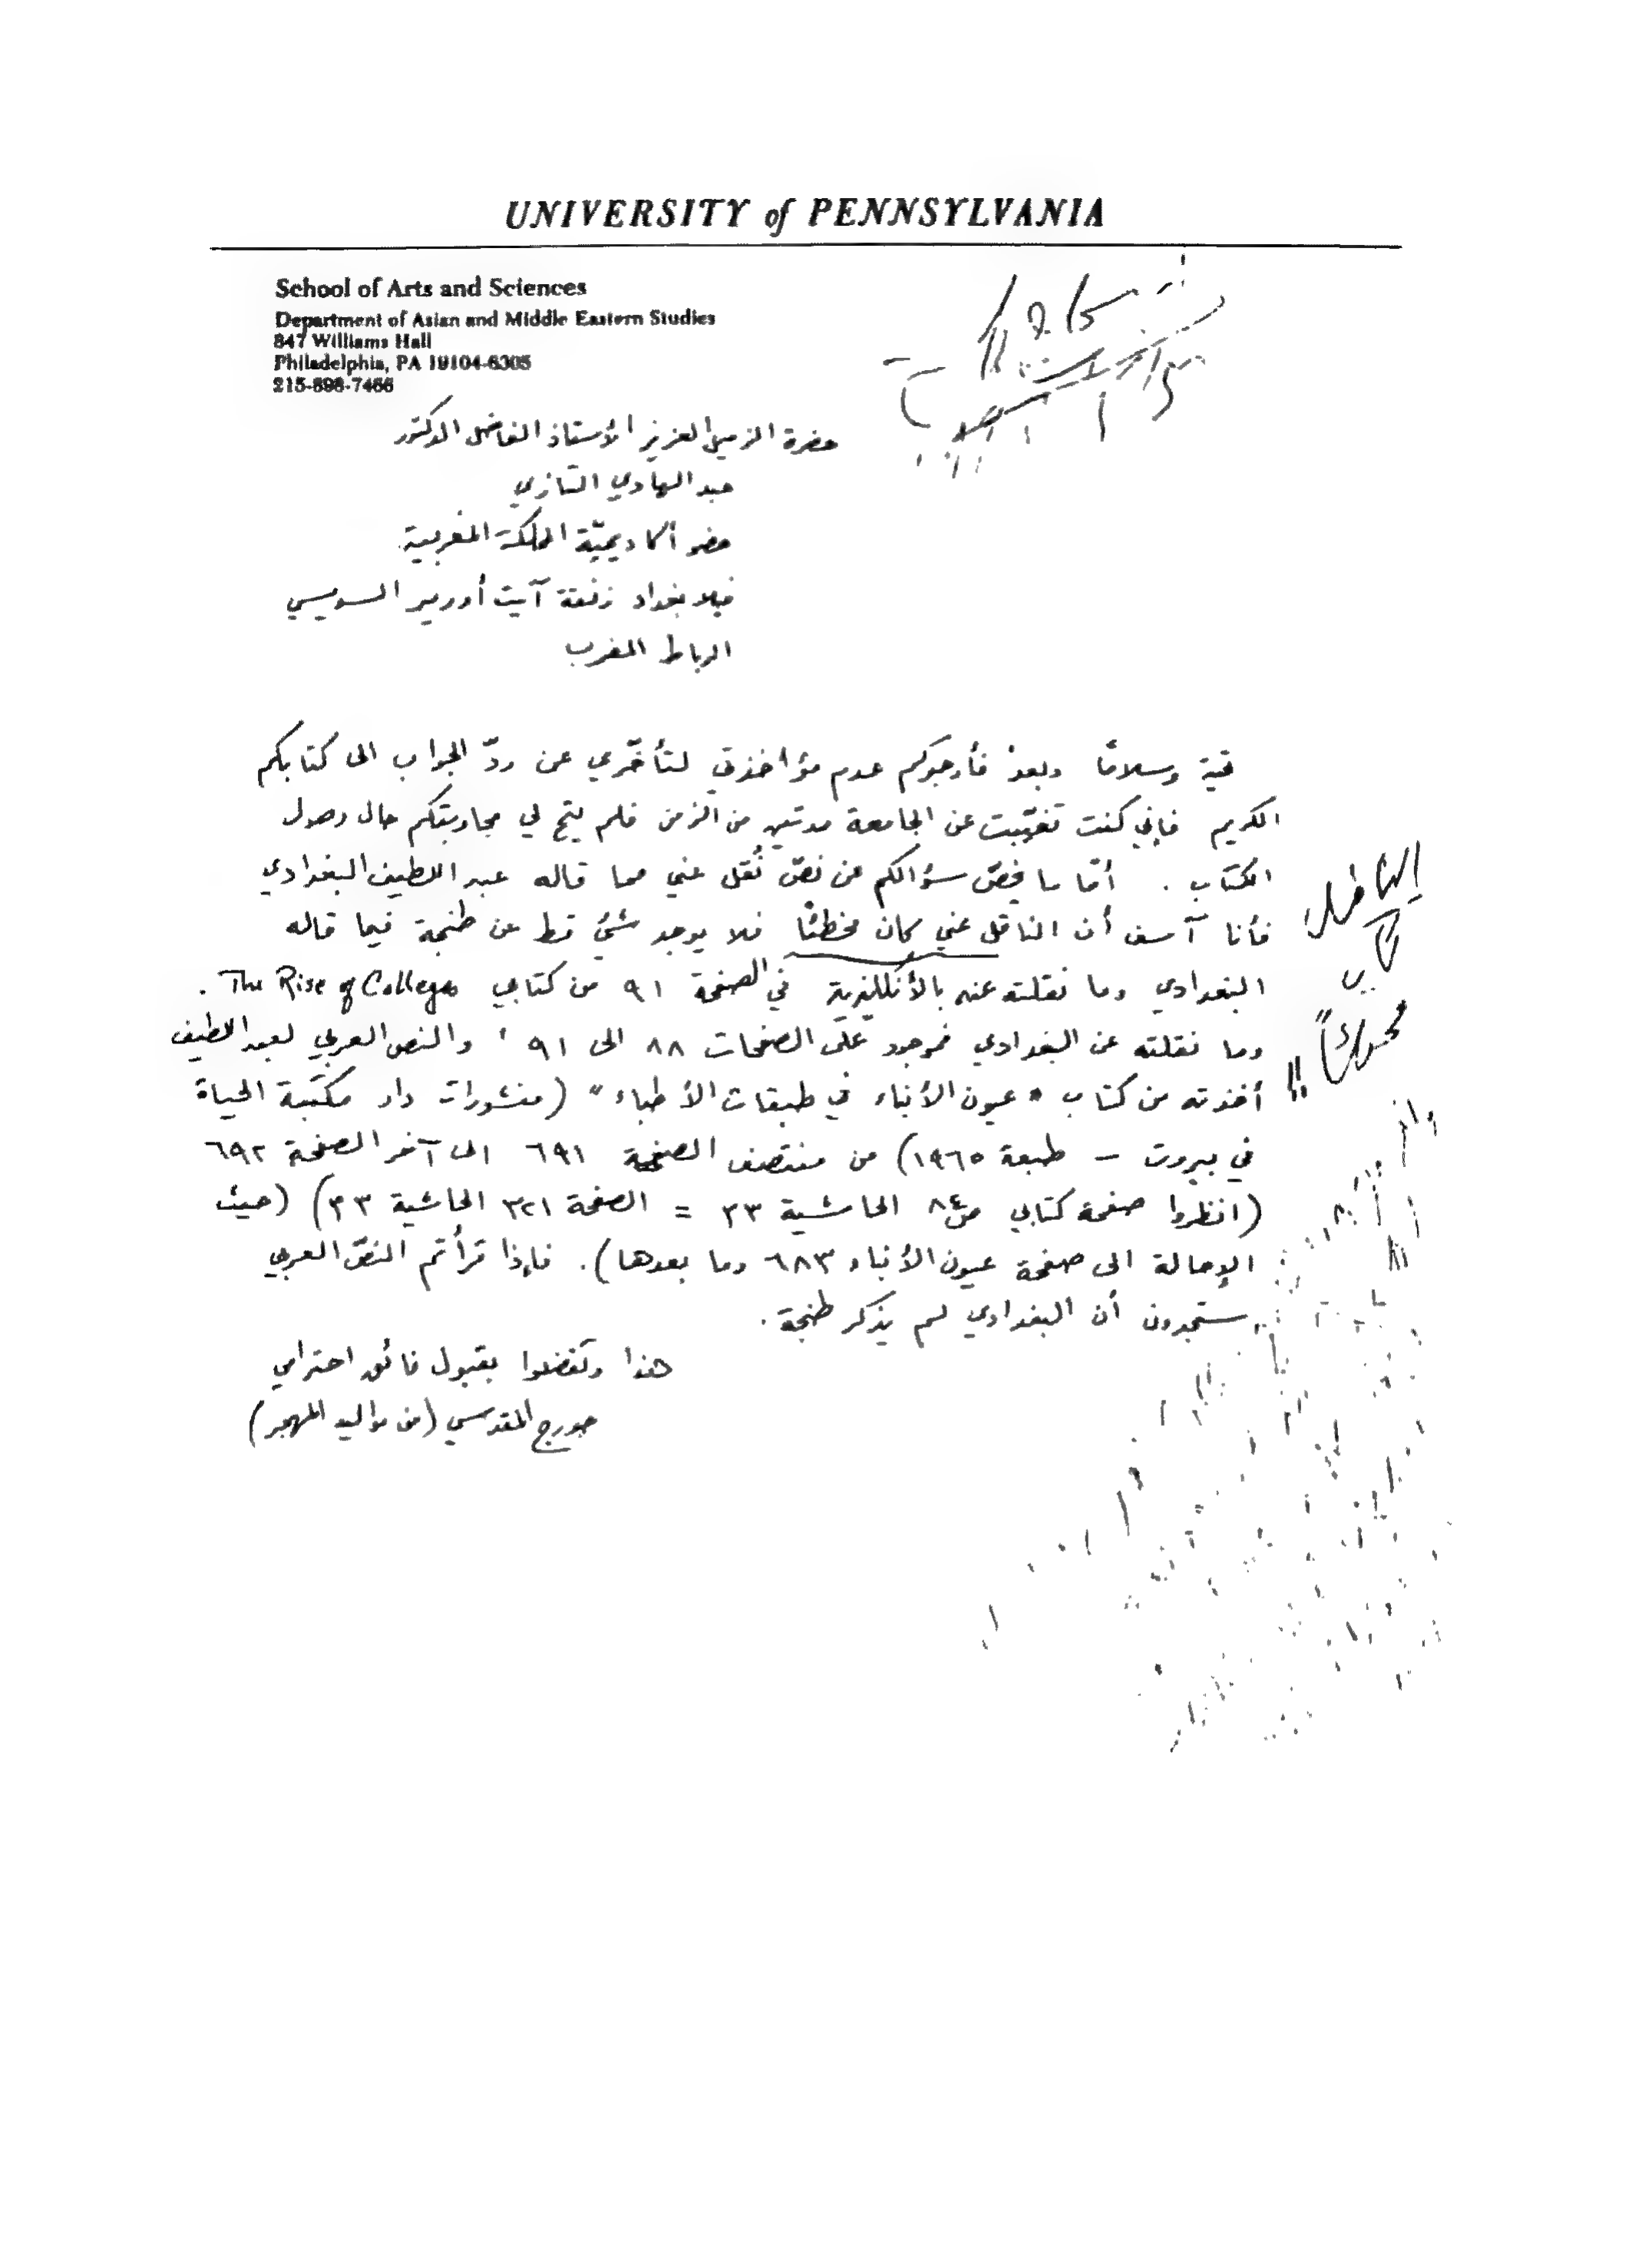 UNIVERSITY of PENNSYLVANIA
School of Arts and Sciences
Department of Asian and Middle Eastern Studies
847 Williams Hall
Philadelphia, PA 19104-6305
215-898-7466
حضرة الزميل العزيز الأستاذ الفاضل الدكتور
عبد الهادي التازي
عضو أكاديميّة المملكة المغربية
فيلا بغداد زنقة آيت أورير السويسي
الرباط المغرب
تحية وسلامًا وبعدُ فأرجوكم عدم مؤاخذتي لتأخّري عن ردّ الجواب الى كتابكم
الكريم فإني كنت تغيّبت عن الجامعة مدتين من الزمن فلم يتح لي مجاوبتكم حال وصول
الكتاب . أمّا ما يخصّ سؤالكم عن نصّ نُقل عني مما قاله عبد اللطيف البغدادي
فأنا آسف أن الناقل عني كان مخطئًا فلا يوجد شيء قط عن طنجة فيما قاله
البغدادي وما نقلته عنه بالأنكليزية في الصفحة ٩١ من كتابي The Rise of Colleges .
وما نقلته عن البغدادي فموجود على الصفحات ٨٨ الى ٩١ ، والنص العربي لعبد اللطيف
أخذته من كتاب "عيون الأنباء في طبقات الأطباء" (منشورات دار مكتبة الحياة
في بيروت – طبعة ١٩٦٥) من منتصف الصفحة ٦٩١ الى آخر الصفحة ٦٩٢
(انظروا صفحة كتابي ص ٨٤ الحاشية ٣٣ = الصفحة ٣٢١ الحاشية ٣٣) (حيث
الإحالة الى صفحة عيون الأنباء ٦٨٣ وما بعدها). فإذا قرأتم النصّ العربي
ستجدون أن البغدادي لم يذكر طنجة .
هذا وتفضلوا بقبول فائق احترامي
جورج المقدسي (من مواليد المهجر)